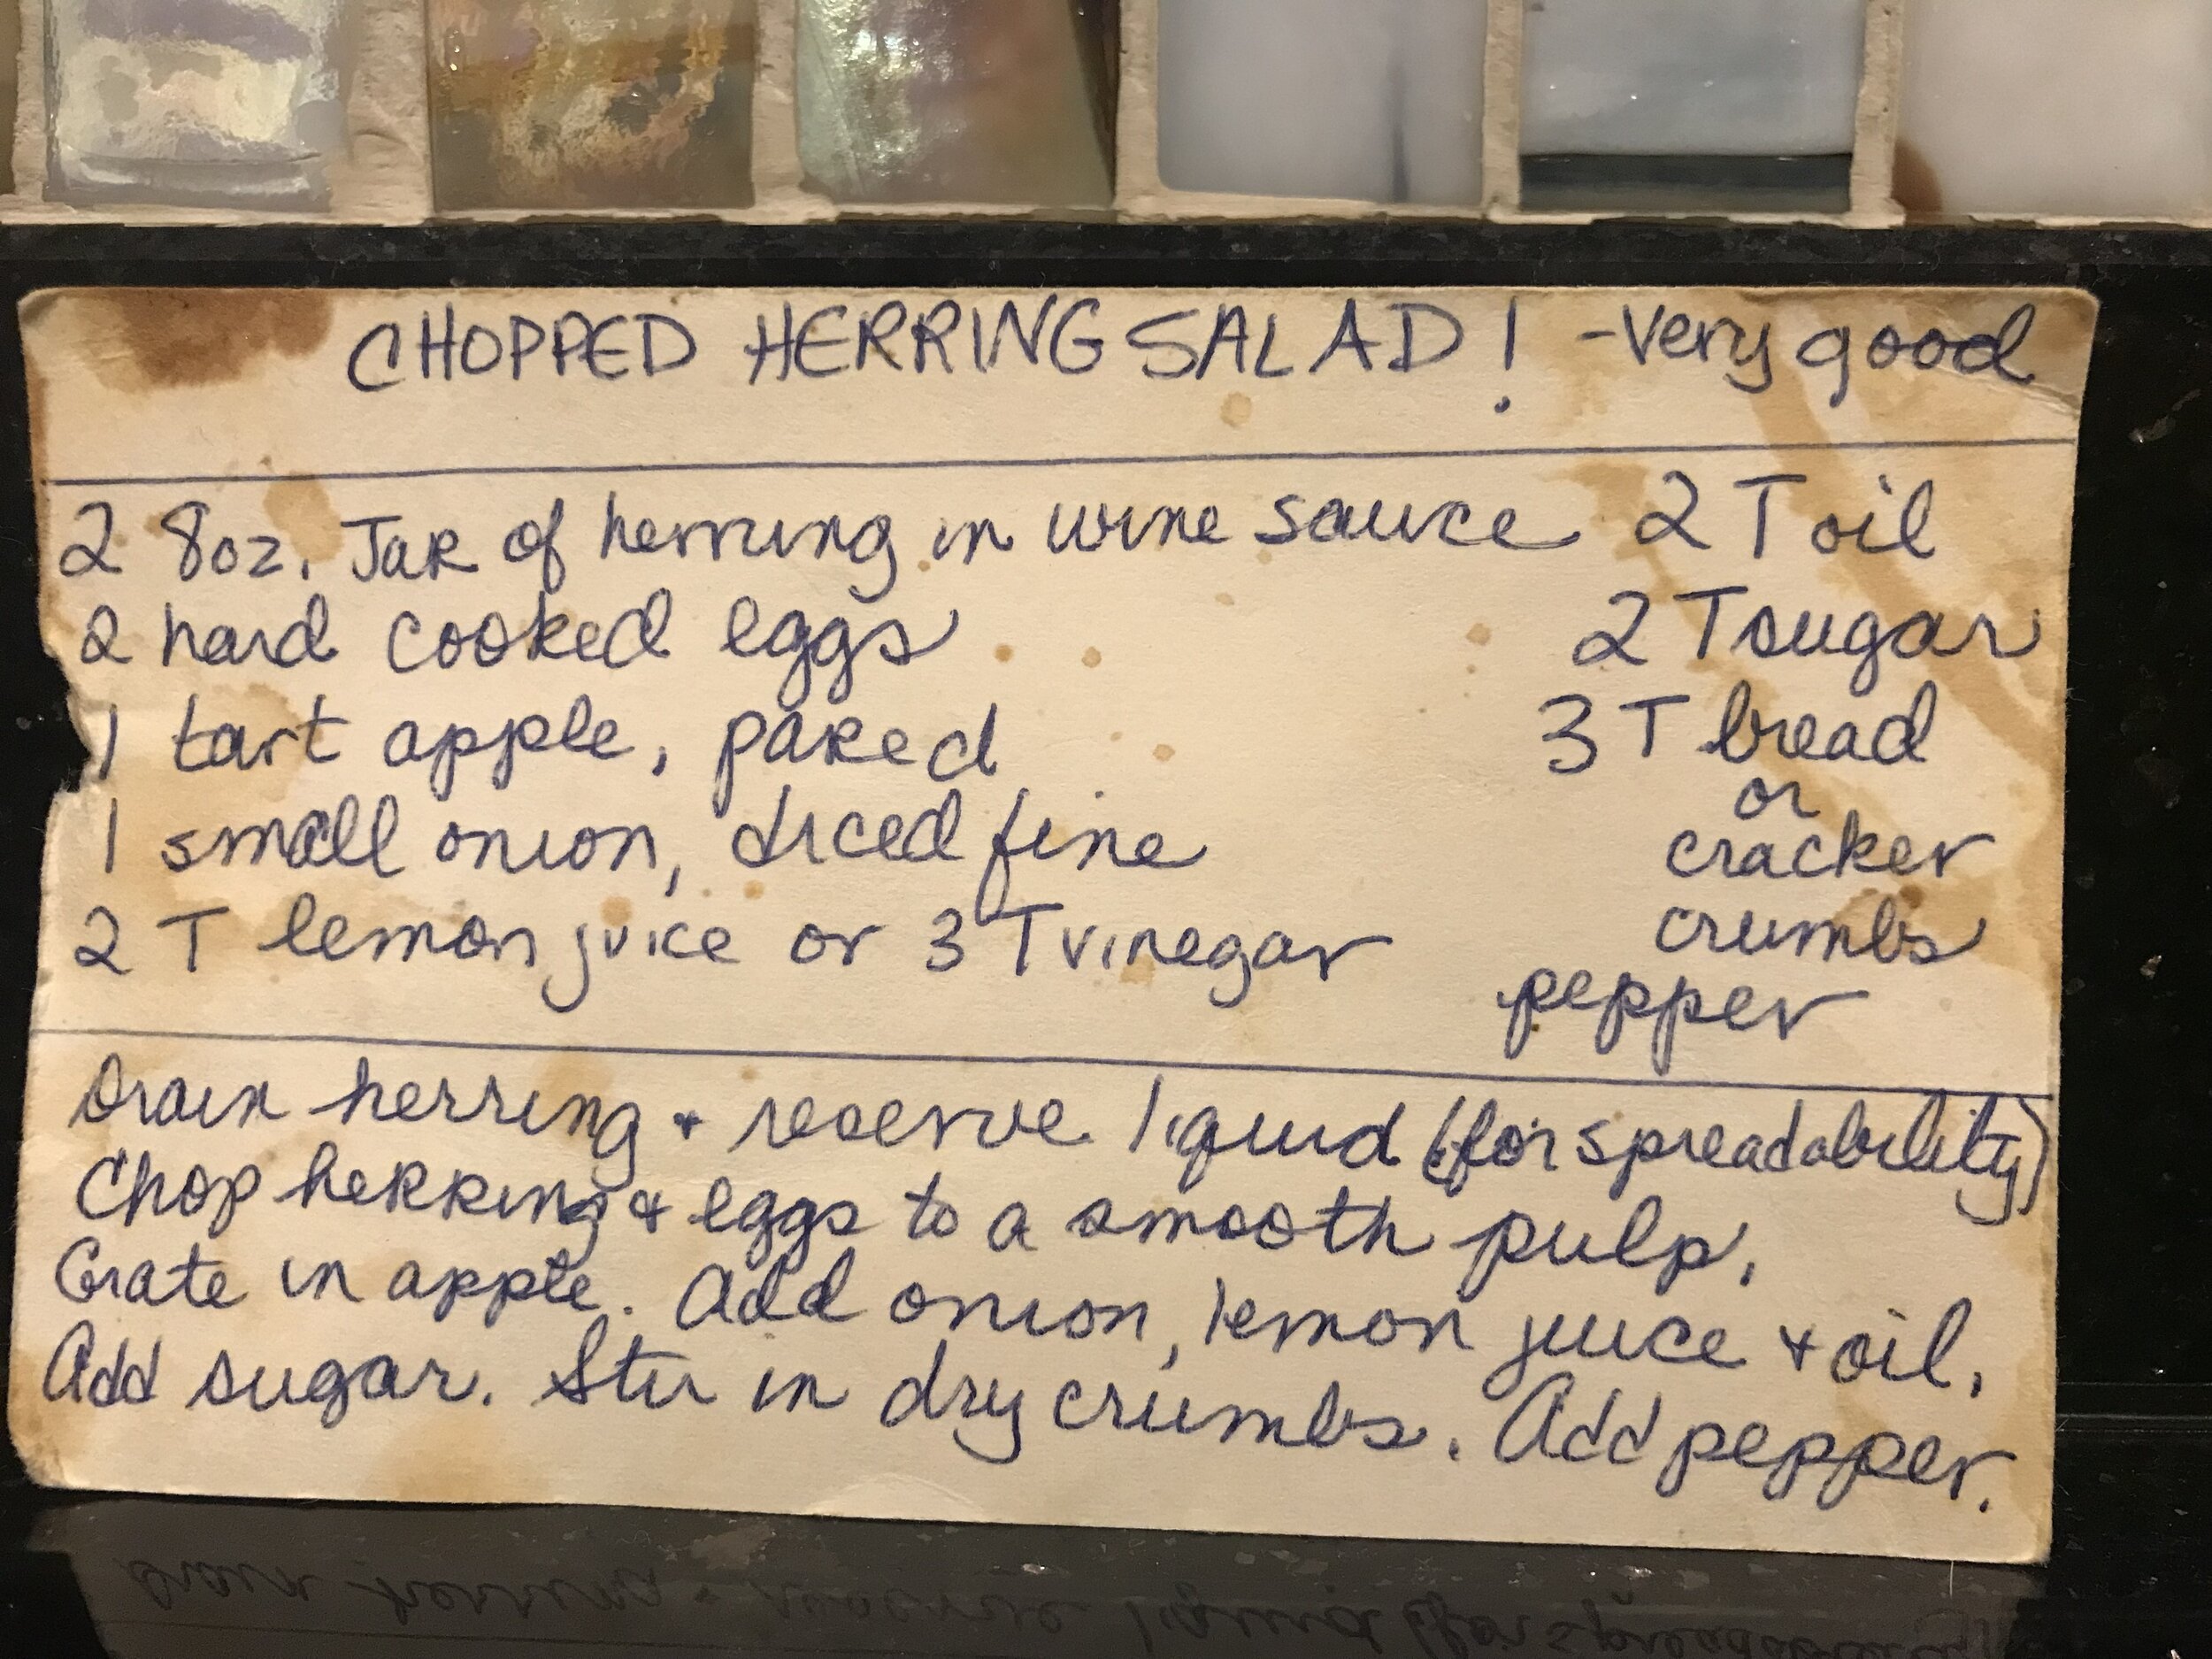 CHOPPED HERRING SALAD! - Very good
2 8oz. Jar of herring in wine sauce
2 hard cooked eggs
1 tart apple, pared
1 small onion, diced fine
2 T lemon juice or 3 T vinegar
2 T oil
2 T sugar
3 T bread
or
cracker
crumbs
pepper
Drain herring + reserve liquid (for spreadability)
Chop herring + eggs to a smooth pulp.
Grate in apple. Add onion, lemon juice + oil.
Add sugar. Stir in dry crumbs. Add pepper.